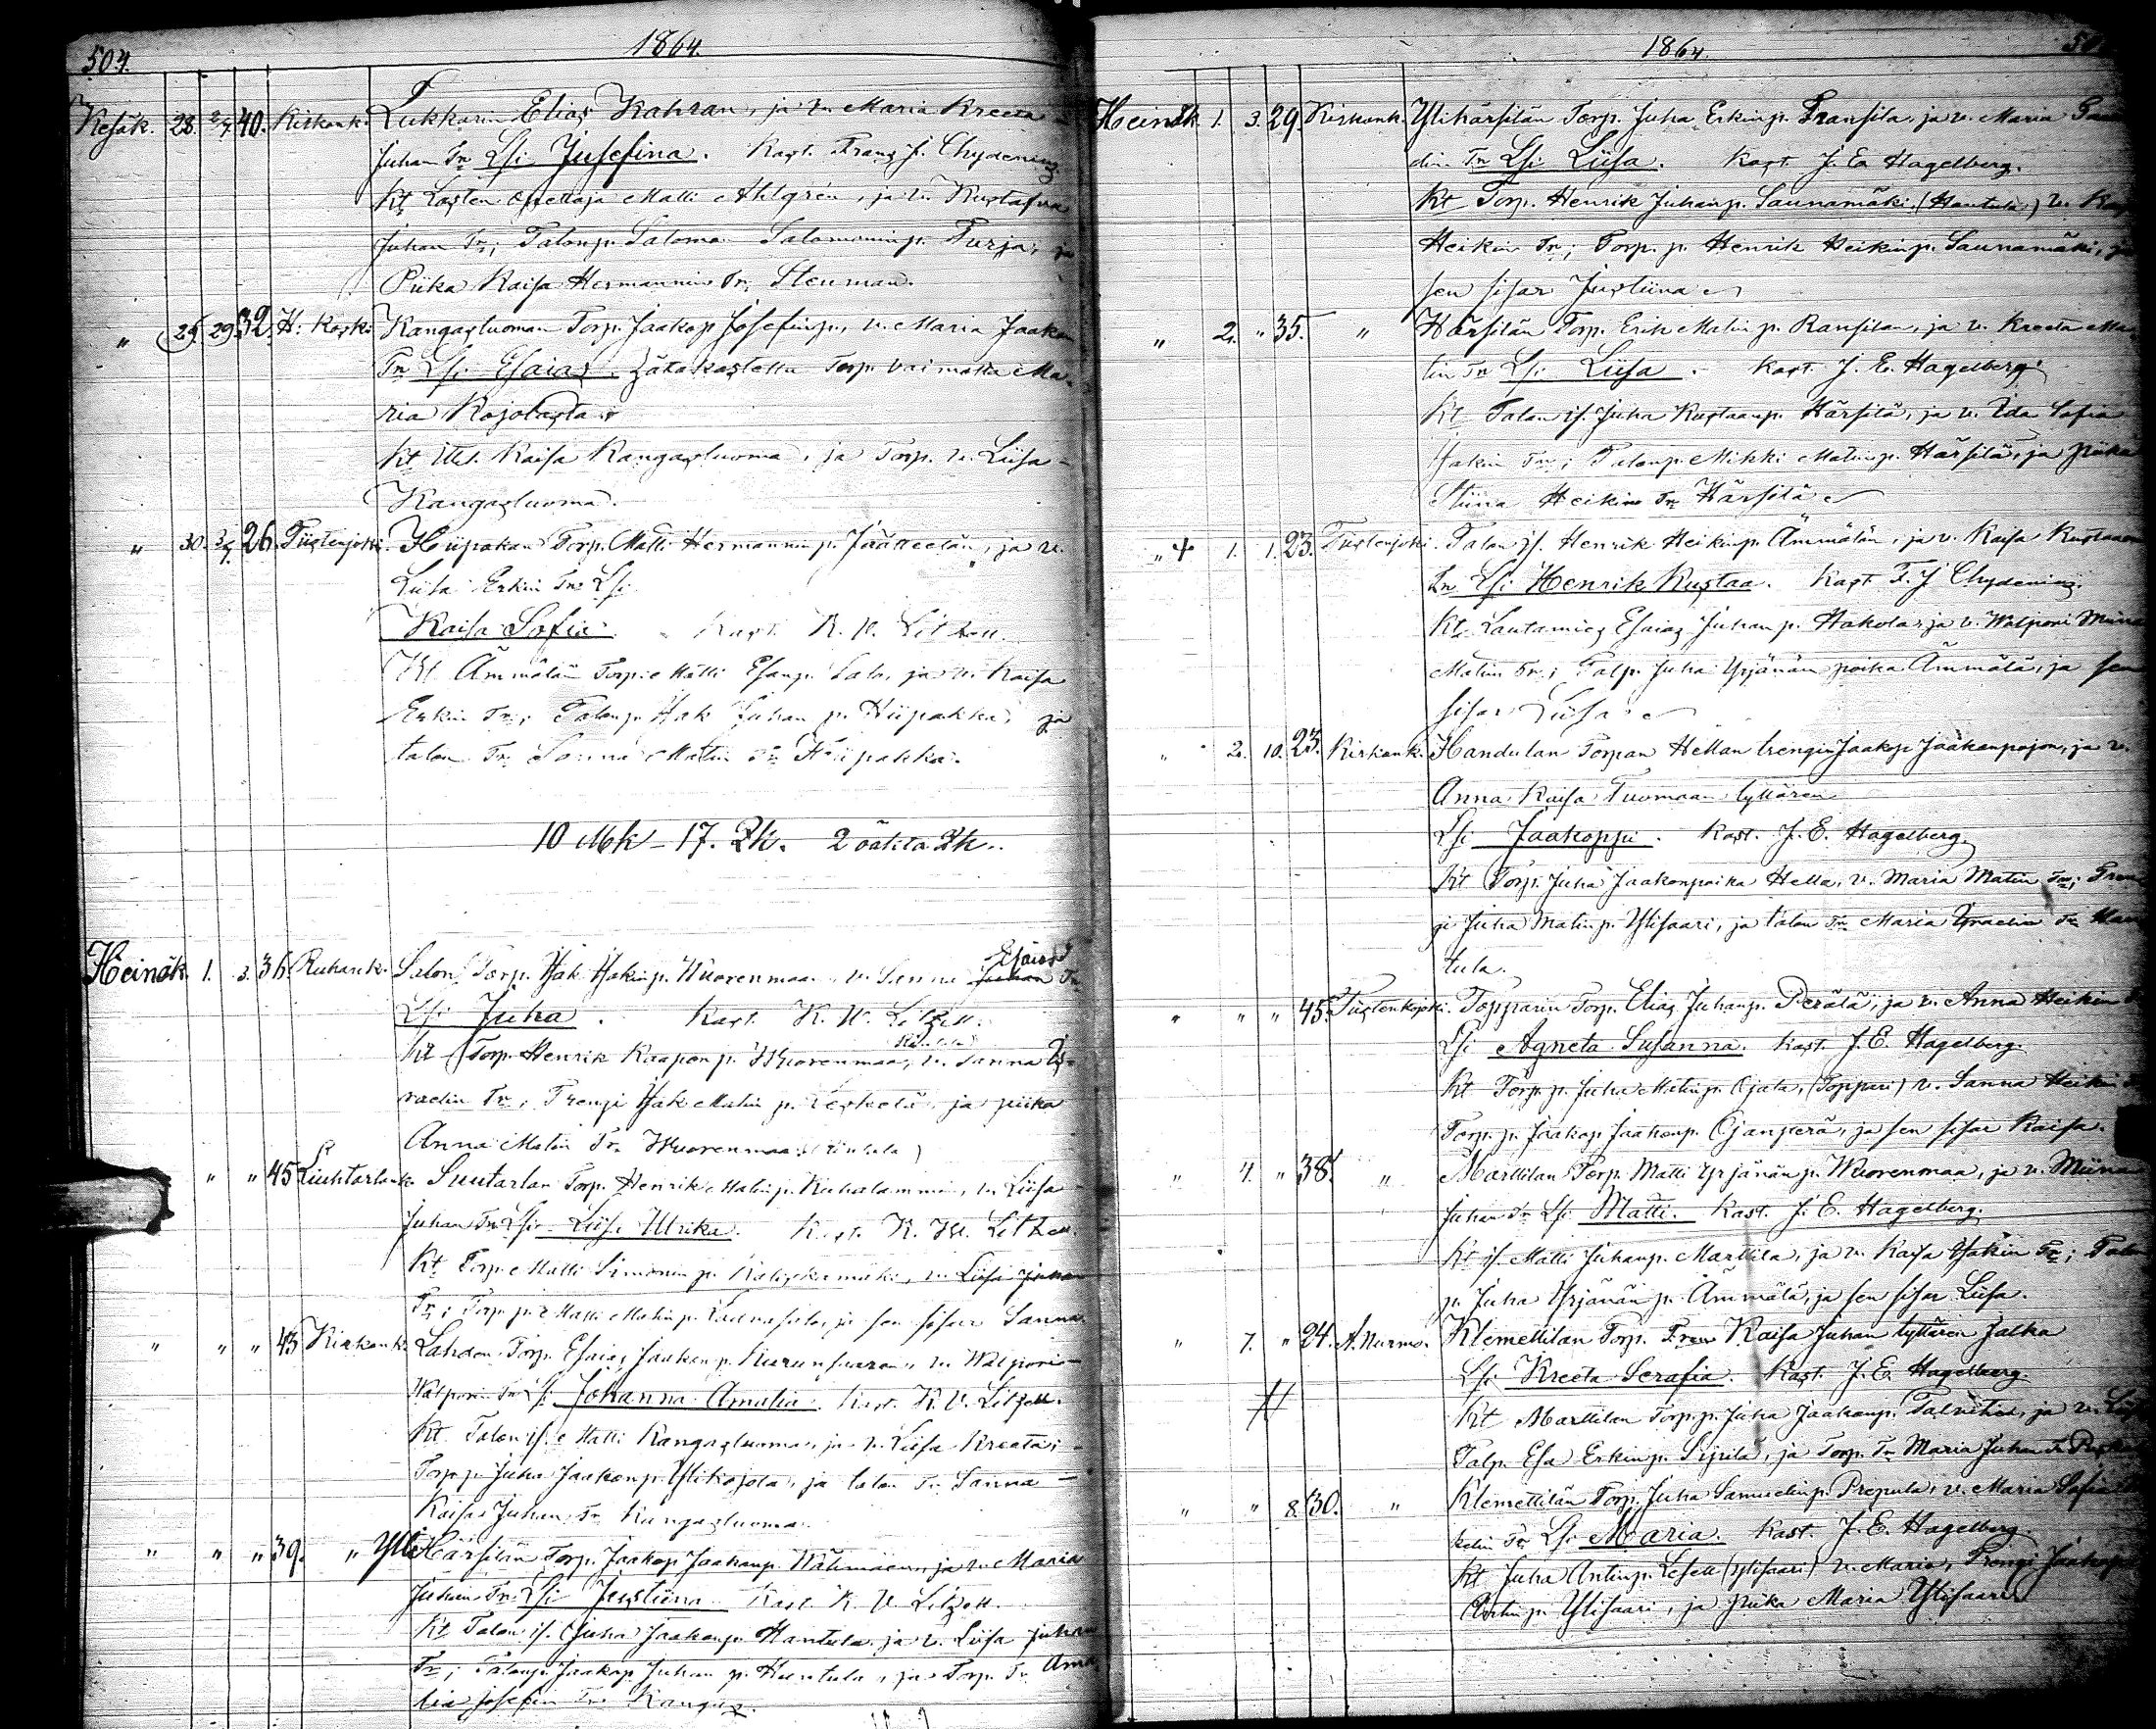 504.
1864.
Kesäk. 28. 2/7. 40. Kirkonk. Lukkarin Elias Kahran, ja v. Maria Kreeta
Juhan Tr. Lsi Jusefina. Kast. Frans J. Chydenius
Kt Lasten Opettaja Matti Ahlgrén, ja v. Kustafva
Juhan Tr; Talonp. Saloma Salomonin p. Turja, ja
Piika Kaisa Hermannin Tr. Stenman.
" 25. 29. 32. H: Koski Kangasluoman Torp. Jaakop Josefinp., v. Maria Jaakon
Tr. Lsi Esaias. Hätäkastettu Torp. vaimolta Ma-
ria Kojolasta
Kt Itel. Kaisa Kangasluoma, ja Torp. v. Liisa
Kangasluoma.
" 30. 3/7. 26. Tiistenjoki. Hiipakan Torp. Matti Hermannin p. Jäätteelän, ja v.
Liisa Erkin Tr. Lsi
Kaisa Sofia. Kast. K. V. Litzell.
Kt Ämmälän Torp. Matti Esanp. Salo, ja v. Kaisa
Erkin Tr; Talonp. Isak Juhan p. Hiipakka, ja
talon Tr. Sanna Matin Tr. Hiipakka.
10 Mk – 17. Zk. 2 äälitä Zk.
Heinäk. 1. 3. 36. Ruhank. Salon Torp. Isak Isakin p. Wuorenmaan, v. Sanna Juhan Esaias Tr.
Lsi Juha. Kast. K. W. Litzell.
Kt Torp. Henrik Kaapon p. Wuorenmaa, v. Sanna Is-
raelin Tr; Trengi Isak Matin p. , ja piika
Anna Matin Tr. Wuorenmaa
" " 45 Liuhtarlank. Suutarlan Torp. Henrik Matin p. Kuhalammin, v. Liisa
Juhan Tr. Lsi Liisa Ulrika. Kast. K. W. Litzell.
Kt Torp. Matti Simonin p. , v. Liisa Juhan
Tr; Torp. p. Matti Matin p. , ja sen sisar Sanna.
" " " 43 Kirkonk. Lahdon Torp. Esaias Jaakon p. , v. Walpori
Walporin Tr. Lsi Johanna Amalia. Kast. K. V. Litzell.
Kt. Talon is. Matti Kangasluoma, ja v. Liisa Kreeta;
Torp. p. Juha Jaakon p. Ylikojola, ja talon Tr. Sanna
Kaisa Juhan Tr. Kangasluoma.
" " " 39. " Yli Härsilän Torp. Jaakop Jaakonp. , ja v. Maria
Juhan Tr. Lsi Justiina. Kast. K. V. Litzell.
Kt Talon is. Juha Jaakonp. Hantula, ja v. Liisa Juhan
Tr; Talonp. Jaakop Juhan p. Hantula, ja Torp. Tr. Ama-
lia Josefin Tr. Kangas.
1864.
Heinäk. 1. 3. 29. Kirkonk. Ylihärsilän Torp. Juha Erkinp. Fransila, ja v. Maria
din Tr. Lsi Liisa. Kast. J. E. Hagelberg.
Kt Torp. Henrik Juhanp. Saunamäki, (Hantula) v.
Heikin Tr; Torp. p. Henrik Heikinp. Saunamäki, ja
sen sisar Justiina
" 2. " 35. " Härsilän Torp. Erik Matin p. Ransilan, ja v. Kreeta Ma-
tin Tr. Lsi Liisa. Kast. J. E. Hagelberg.
Kt Talon is. Juha Kustaanp. Härsilä, ja v. Ida Sofia
Isakin Tr; Talonp. Mikki Matinp. Härsilä, ja piika
Stiina Heikin Tr. Härsilä
" 1. 1. 23. Tiistenjoki. Talon is. Henrik Heikinp. Ämmälän, ja v. Kaisa Kustaan
Tr. Lsi Henrik Kustaa. Kast. F. J. Chydenius.
Kt Lautamies Esaias Juhan p. Hakola, ja v. Walpori Miina
Matin Tr; Talp. Juha Yrjänän poika Ämmälä, ja sen
sisar Liisa
" 2. 10. 23. Kirkonk. Handulan Torpan Hellan trengin Jaakop Jaakonpojan, ja v.
Anna Kaisa Tuomaan tyttären
Lsi Jaakoppi. Kast. J. E. Hagelberg.
Kt Torp. Juha Jaakonpoika Hella, v. Maria Matin Tr; Tren-
gi Juha Matin p. Ylisaari, ja talon Tr. Maria Israelin Tr. Han-
tula.
" " " 45. Tiistenkoski. Topparin Torp. Elias Juhanp. Perälä, ja v. Anna Heikin
Lsi Agneta Susanna. Kast. J. E. Hagelberg.
Kt Torp. p. Juha Matinp. Ojala, (Toppari) v. Sanna Heikin
Torp. p. Jaakop Jaakonp. Ojanperä, ja sen sisar Kaisa.
" 4. " 38. " Marttilan Torp. Matti Yrjänän p. Wuorenmaa, ja v. Miina
Juhan Tr. Lsi Matti. Kast. J. E. Hagelberg.
Kt is. Matti Juhanp. Marttila, ja v. Kaisa Isakin Tr; Talon
p. Juha Yrjänän p. Ämmälä, ja sen sisar Liisa.
" 7. " 24. A. Nurmo. Klemettilan Torp. Kaisa Juhan tyttären Jalka
Lsi Kreeta Serafia. Kast. J. E. Hagelberg.
Kt Marttilan Torp. p. Juha Jaakonp. Talvitie, ja v.
Talp. Esa Erkinp. Sippilä, ja Torp. Tr. Maria Juhan Tr.
" " 8. 30. " Klemettilän Torp. Juha Samuelin p. Prepula, v. Maria Sofia
kelin Tr. Lsi Maria. Kast. J. E. Hagelberg.
Kt Juha Antinp. Lesell (Ylisaari) v. Maria, Trengi Jaakop
Antin p. Ylisaari, ja piika Maria Ylisaari